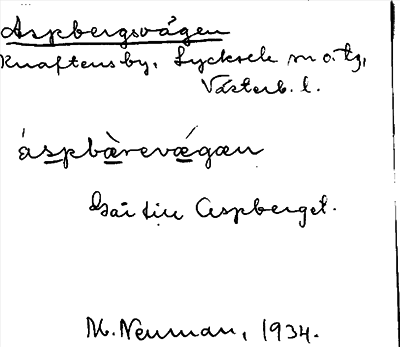 Aspbergsvägen
Knaftens by, Lycksele m o. tg,
Västerb. l.
áspbàrevǽgæn
Går till Aspberget.
M. Neuman, 1934.